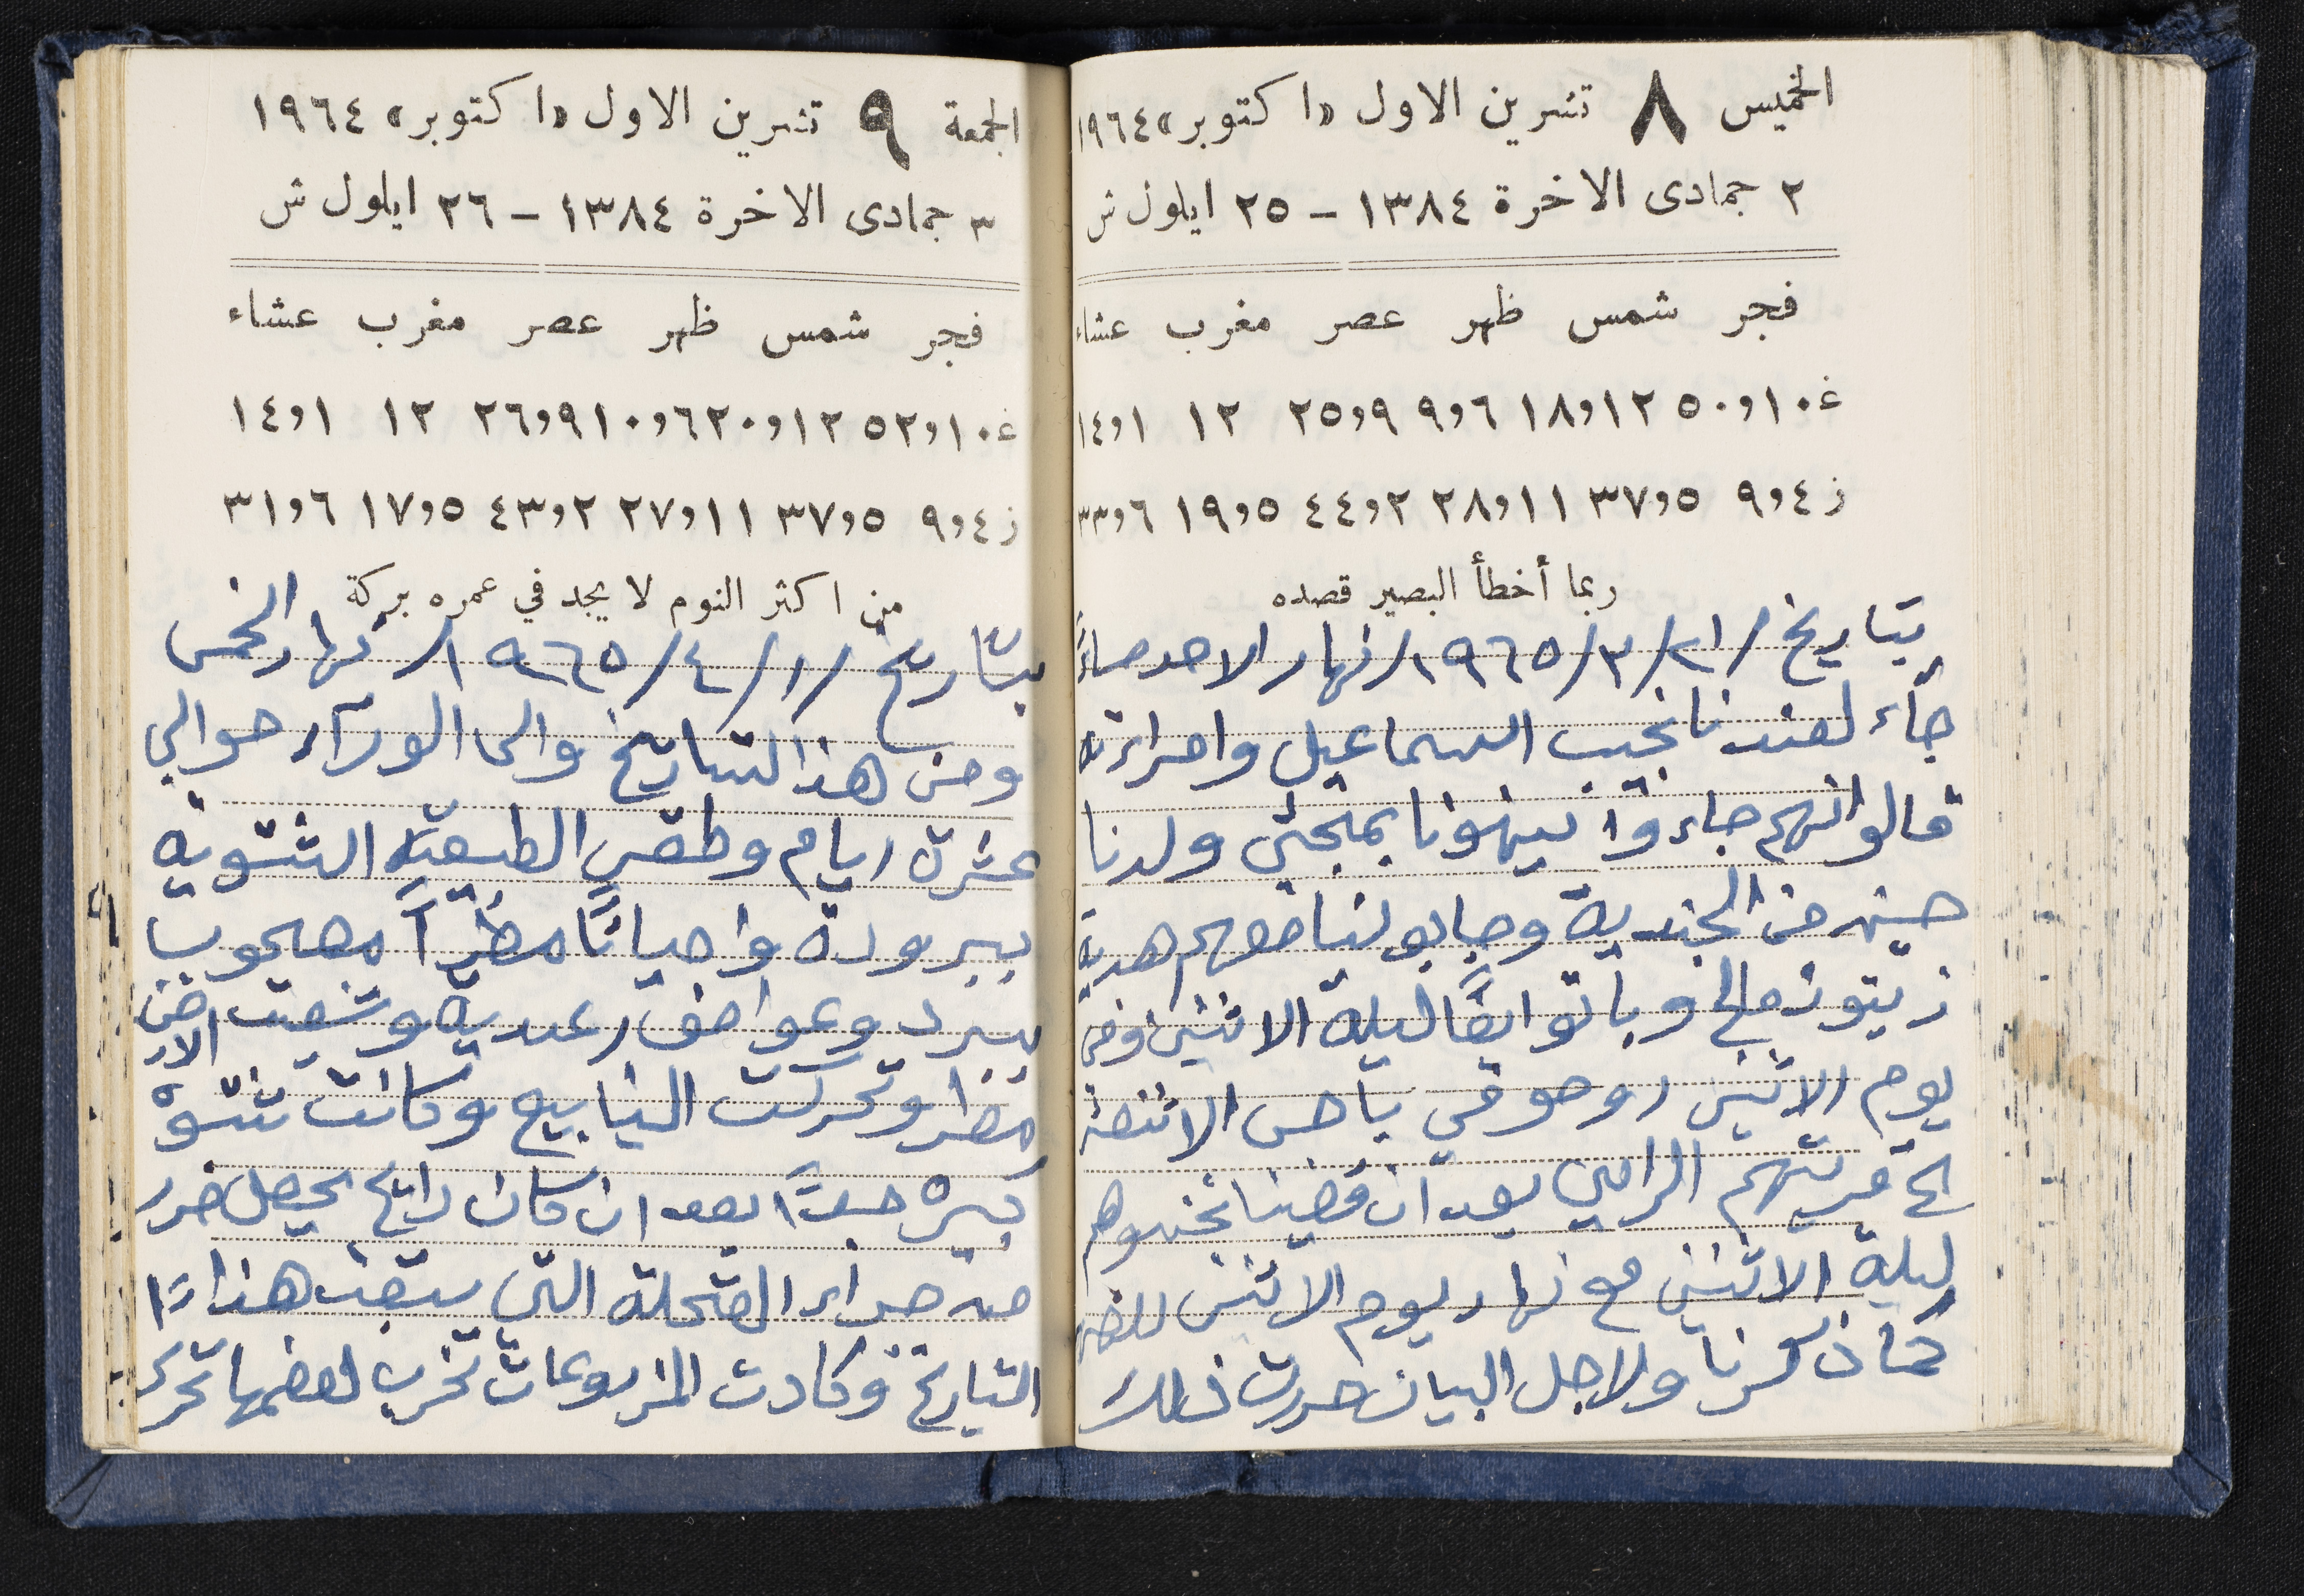 الخميس ٨ تشرين الاول «اكتوبر» ١٩٦٤
٢ جمادى الاخرة ١٣٨٤ – ٢٥ ايلول ش
فجر شمس ظهر عصر مغرب عشاء
غ ١٠و٥٠ ١٢و١٨ ٦و٩ ٩و٢٥ ١٢ ١و١٤
ز ٤و٩ ٥و٣٧ ١١و٢٨ ٢و٤٤ ٥و١٩ ٦و٣٣
ربما أخطأ البصير قصده
بتاريخ /٢١/٣/١٩٦٥/ نهار الاحد مساءً
جاء لعندنا نجيب السماعيل وامراءته
قالوا انهم جاءوا يهنونا بمجئي ولدنا
من الجندية وجابو لنا معهم هدية
زيتون مالح وباتو ايضًا ليلة الاثنين وفي
يوم الاثنين روحو في باص
الى قريتهم الرامي بعد ان قضينا
ليلة الاثنين مع نهار يوم الاثنين للظهر
كما ذكرنا ولاجل البيان حررت ذلك
الجمعة ٩ تشرين الاول «اكتوبر» ١٩٦٤
٣ جمادى الاخرة ١٣٨٤ – ٢٦ ايلول ش
فجر شمس ظهر عصر مغرب عشاء
غ ١٠و٥٢ ١٢و٢٠ ٦و١٠ ٩و٢٦ ١٢ ١و١٤
ز ٤و٩ ٥و٣٧ ١١و٢٧ ٢و٤٣ ٥و١٧ ٦و٣١
من اكثر النوم لا يجد في عمره بركة
بتاريخ /١/٤/١٩٦٥/ نهار الخميس
ومن هذا التاريخ والى الوراء حوالي
عشرة ايام وطقس الطبيعة الشتوية
ببرودة واحيانًا مطرًا مصحوبا
ببرد وعواصف رعدية وشبعت الارض
مطر وتحركت الينابيع وكانت شتوة
كبيرة جدًا بعد ان كان رايح يحصل ضرر
من جراء المحلة التي سبقت هذا
التاريخ وكادت المزروعات تخرب بعضها